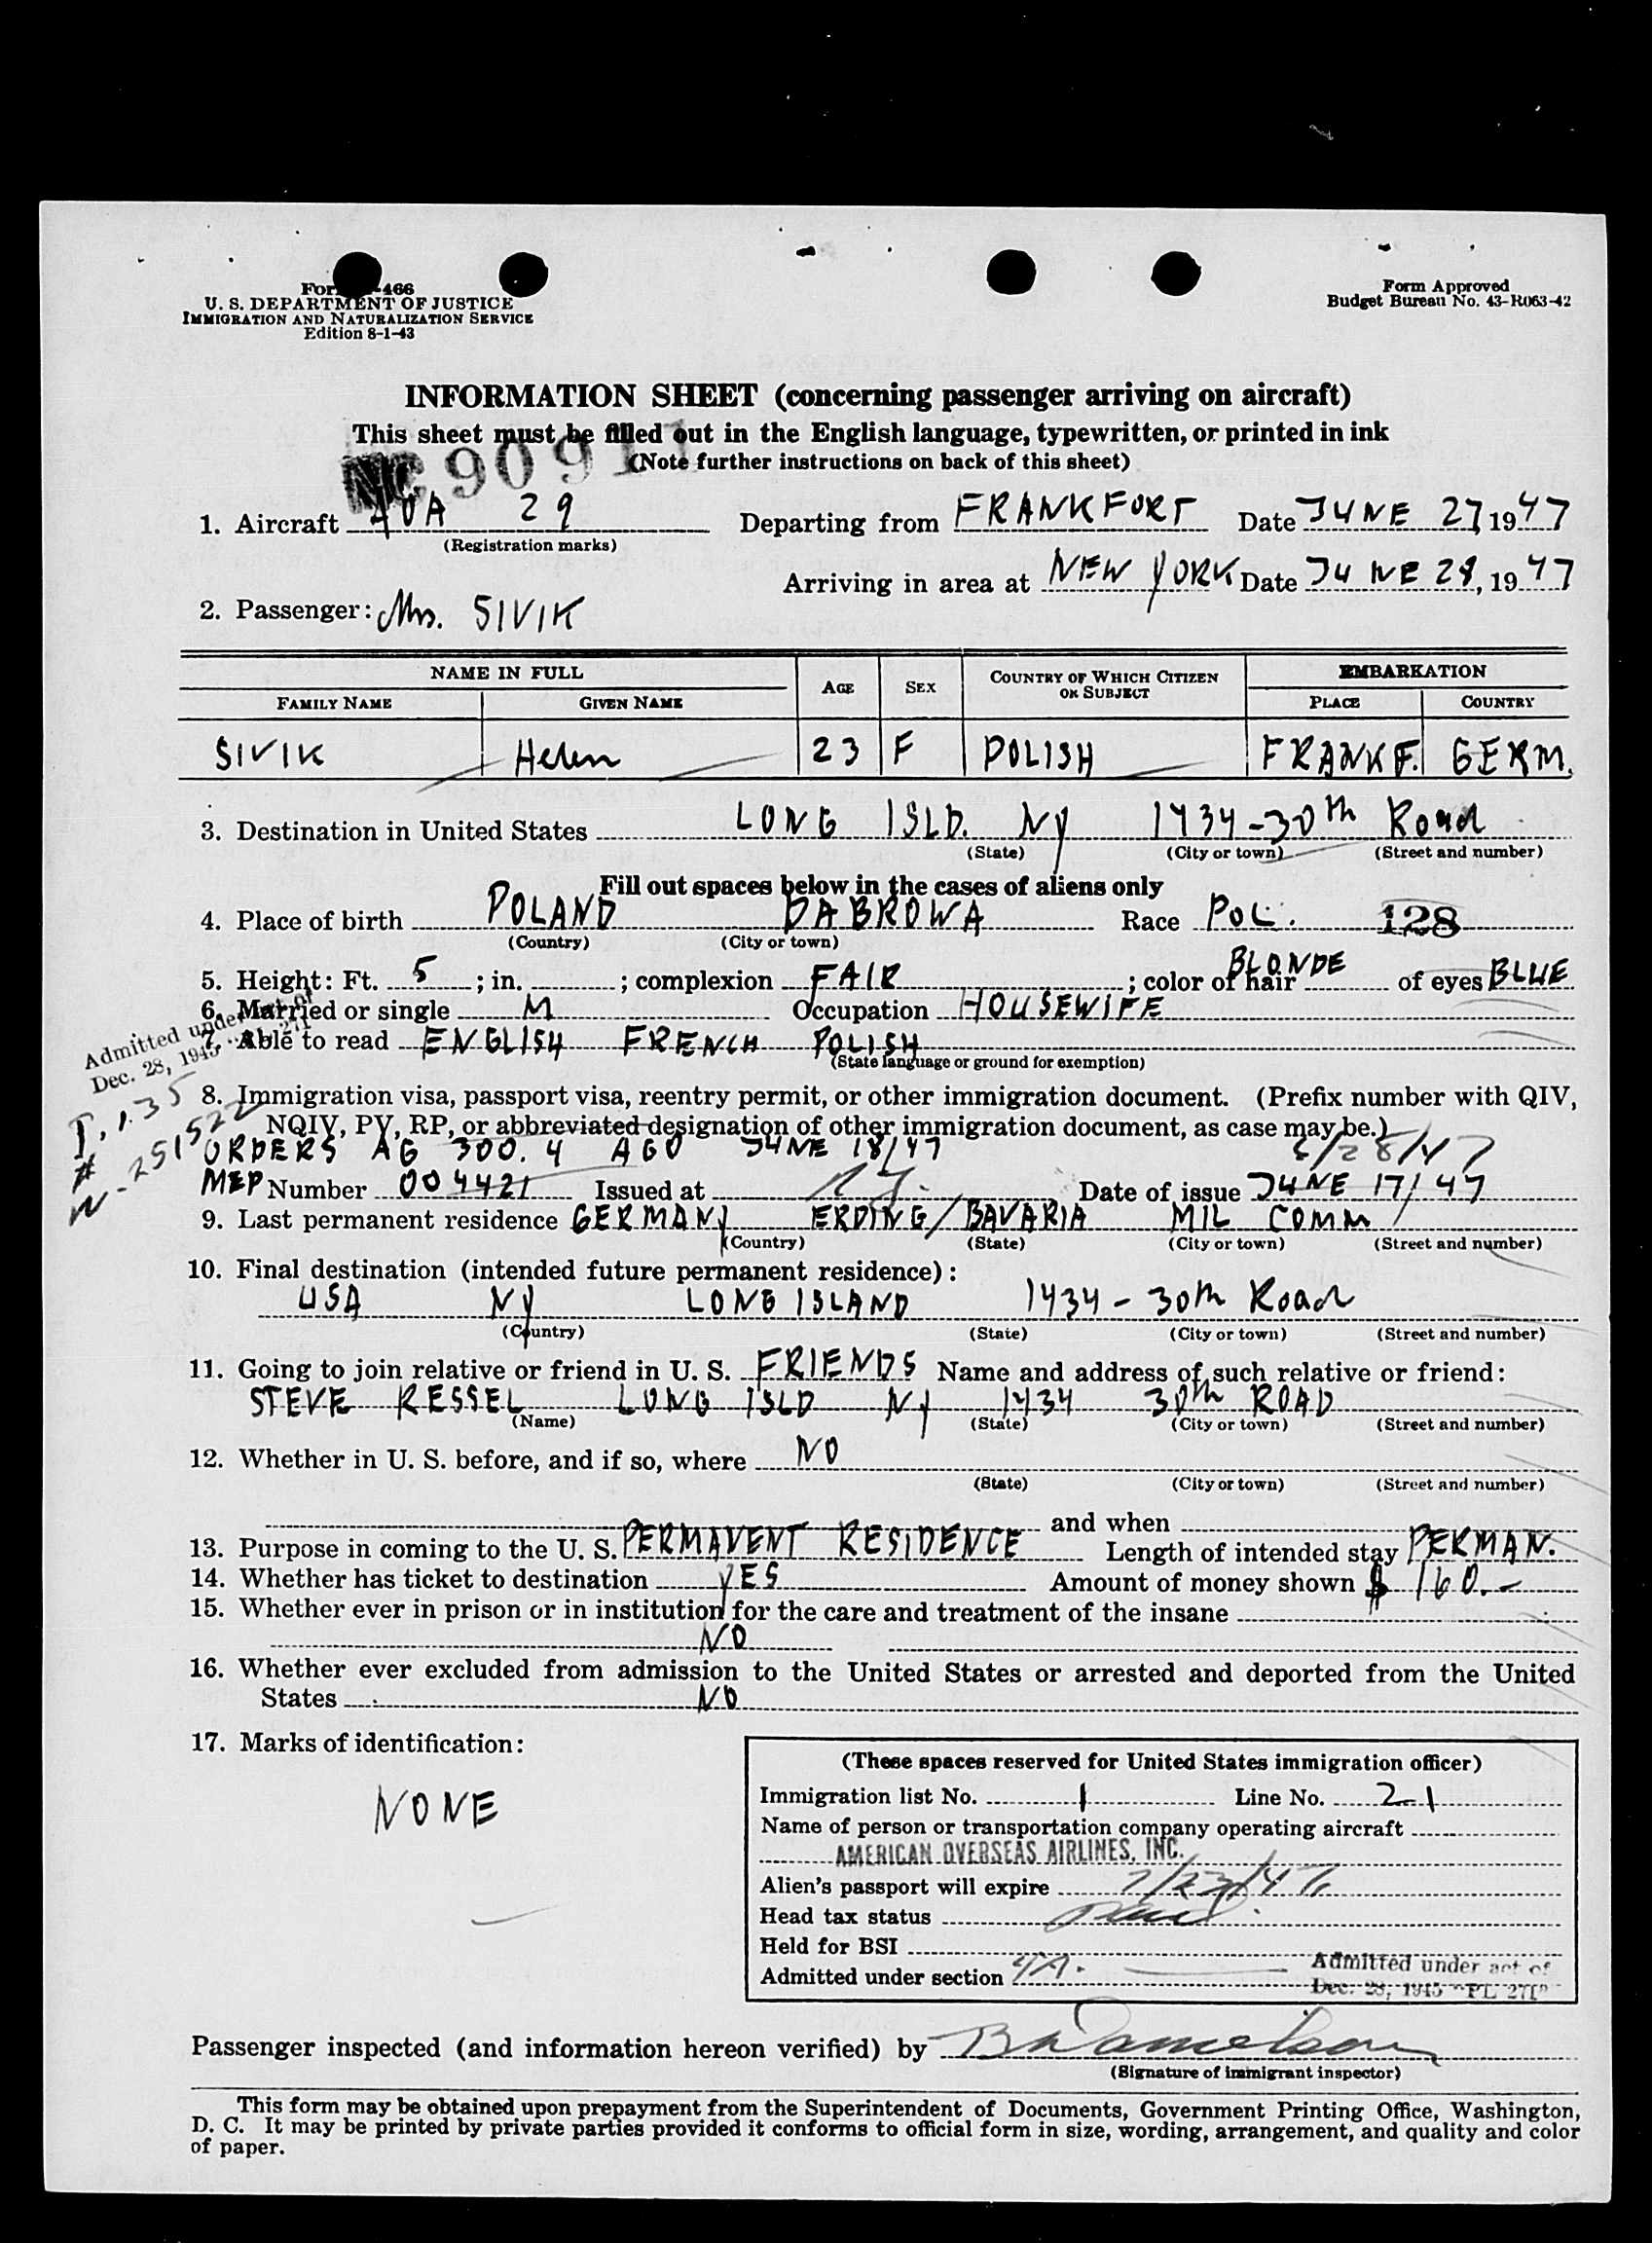 For -466
U. S. DEPARTMENT OF JUSTICE
IMMIGRATION AND NATURALIZATION SERVICE
Edition 8-1-43
Form Approved
Budget Bureau No. 43-R063-42
INFORMATION SHEET (concerning passenger arriving on aircraft)
This sheet must be filled out in the English language, typewritten, or printed in ink
(Note further instructions on back of this sheet)
NC 90911
1. Aircraft 29 Departing from FRANKFORT Date JUNE 27, 1947
(Registration marks)
Arriving in area at NEW YORK Date JUNE 28, 1947
2. Passenger: Mrs. SIVIK
NAME IN FULL AGE SEX COUNTRY OF WHICH CITIZEN OR SUBJECT EMBARKATION
FAMILY NAME GIVEN NAME PLACE COUNTRY
SIVIK Helen 23 F POLISH FRANKF. GERM.
3. Destination in United States LONG ISLD. NY 1434-30th Road
(State) (City or town) (Street and number)
Fill out spaces below in the cases of aliens only
4. Place of birth POLAND DABROWA Race POL. 128
(Country) (City or town)
5. Height: Ft. 5; in. ; complexion FAIR; color of hair BLONDE of eyes BLUE
6. Married or single M Occupation HOUSEWIFE
7. Able to read ENGLISH FRENCH POLISH
(State language or ground for exemption)
Admitted under act of
Dec. 28, 1945 "PL 271"
8. Immigration visa, passport visa, reentry permit, or other immigration document. (Prefix number with QIV,
NQIV, PV, RP, or abbreviated designation of other immigration document, as case may be.)
# - 251522
ORDERS AG 300.4 AGO JUNE 18/47 6/28/47
MEP Number 004421 Issued at Date of issue JUNE 17/47
9. Last permanent residence GERMANY ERDING/BAVARIA MIL COMM
(Country) (State) (City or town) (Street and number)
10. Final destination (intended future permanent residence):
USA NY LONG ISLAND 1434 - 30th Road
(Country) (State) (City or town) (Street and number)
11. Going to join relative or friend in U. S. FRIENDS Name and address of such relative or friend:
STEVE RESSEL LONG ISLD NY 1434 30th ROAD
(Name) (State) (City or town) (Street and number)
12. Whether in U. S. before, and if so, where NO
(State) (City or town) (Street and number)
and when
13. Purpose in coming to the U. S. PERMAVENT RESIDENCE Length of intended stay PERMAN.
14. Whether has ticket to destination YES Amount of money shown $ 160.-
15. Whether ever in prison or in institution for the care and treatment of the insane
NO
16. Whether ever excluded from admission to the United States or arrested and deported from the United
States NO
17. Marks of identification:
NONE
(These spaces reserved for United States immigration officer)
Immigration list No. 1 Line No. 21
Name of person or transportation company operating aircraft
AMERICAN OVERSEAS AIRLINES, INC.
Alien's passport will expire
Head tax status
Held for BSI
Admitted under section
Admitted under act of
Dec. 28, 1945 "PL 271"
Passenger inspected (and information hereon verified) by
(Signature of immigrant inspector)
This form may be obtained upon prepayment from the Superintendent of Documents, Government Printing Office, Washington,
D. C. It may be printed by private parties provided it conforms to official form in size, wording, arrangement, and quality and color
of paper.